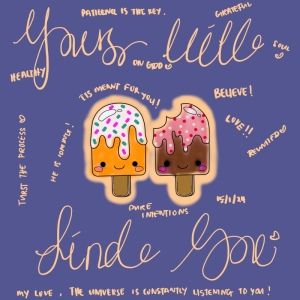 PATIENCE IS THE KEY.
GRATEFUL
Yours Will
SOUL
HEALTHY
ON GOD
TIS MEANT FOR YOU!
BELIEVE!
LOVE!!
REUNITED
TURST THE PROCESS
HE IS
15/1/24
PURE
INTENTIONS
Find You
MY LOVE, THE UNIVERSE IS CONSTANTLY LISTENING TO YOU!